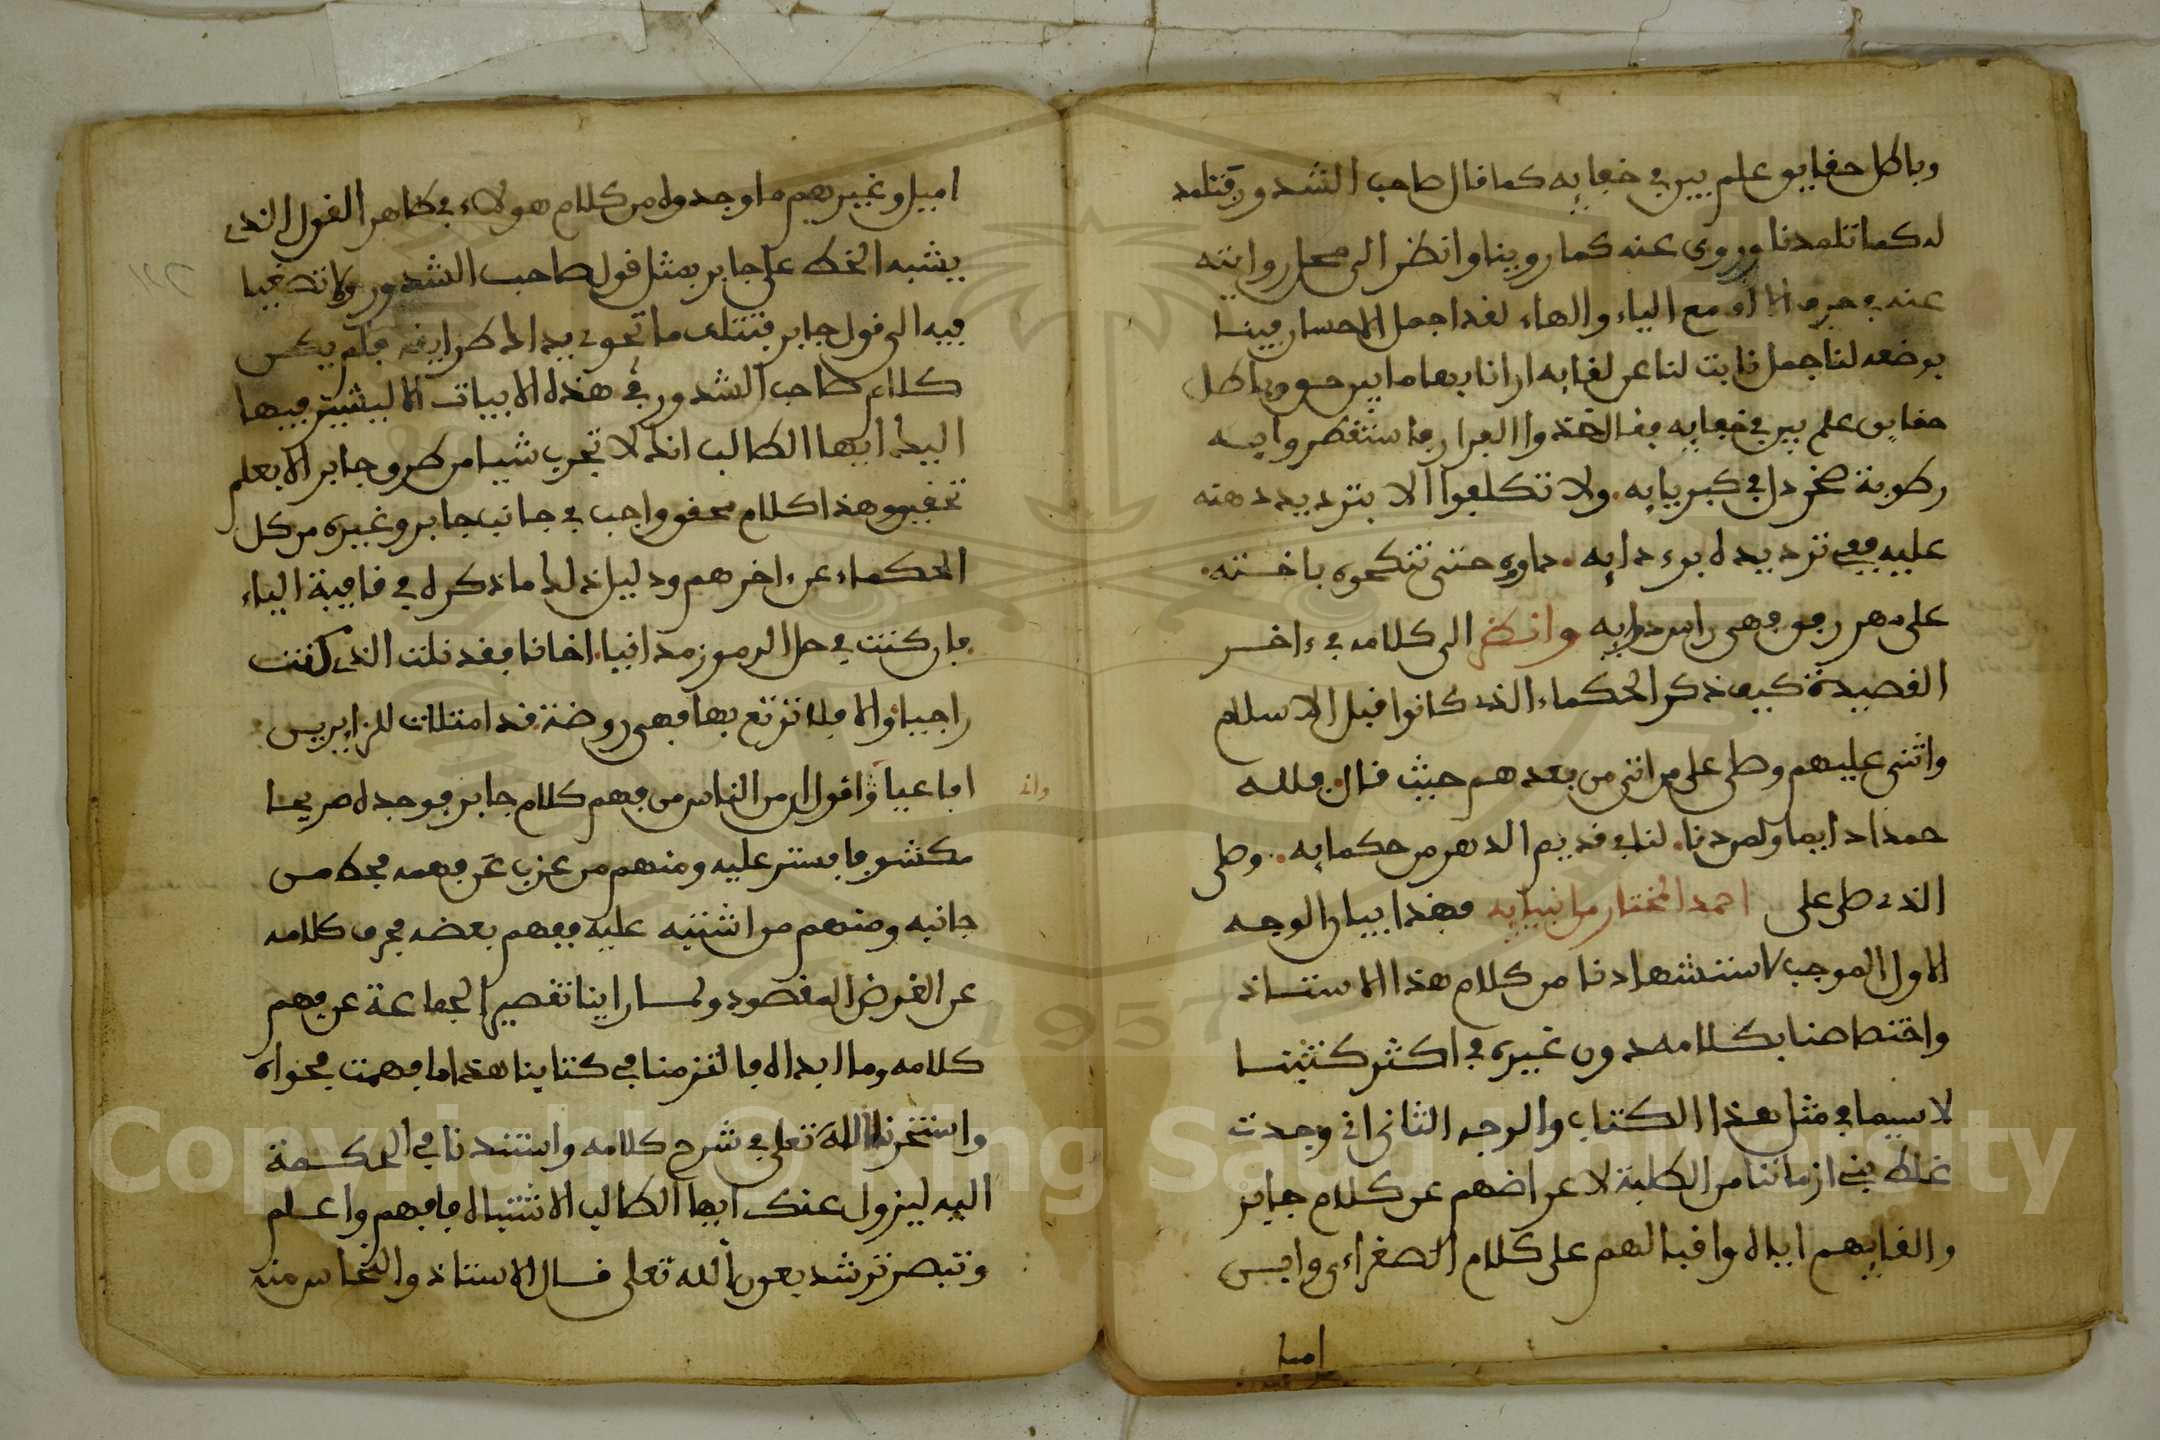 وباطل حقايق علم بين في خفايه كما قال صاحب الشذور فتلمذ
له كما تلمذنا وروى عنه كما روينا وانظر الى محل روايته
عنه في حرف الالف مع الياء والهاء لقد اجمل الاحسان فينا
بوضعه لنا جمل نابت لنا عن لقايه ارانا بها ما بين حق وباطل
حقايق علم بين في خفايه
رطوبة في كبريايه ولا تكلفوا الا بترديد دهنه
عليه ففي ترديده برء دايه داوه حتى تنكحوه باخته
على مهر رفق فهي راس دوايه وانظر الى كلامه في ءاخر
القصيدة كيف ذكر الحكماء الذي كانوا قبل الاسلام
واثنى عليهم وصلى على من اتى من بعدهم حيث قال فلله
حمدا دايما ولمن دنا لنا في قديم الدهر من حكمايه وصلى
الذي صلى على احمد المختار من انبيايه فهذا بيان الوجه
الاول الموجب لاستشهادنا من كلام هذا الاستاذ
واختصاصنا بكلامه دون غيره في اكثر كتبنا
لا سيما في مثل هذا الكتاب والوجه الثاني اني وجدت
غلط بني ازماننا من الطلبة لاعراضهم عن كلام جابر
والغايهم اياه واقبالهم على كلام الصغراءى وابن
اميل
اميل وغيرهم ما وجدوه من كلام هولاء في ظاهر القول الذي
يشبه الخط على جابر بمثل قول صاحب الشذور ولا تصغيا
فيه الى قول جابر فتتلف ما تحوي يداك طرايفه فلم يكن
كلام صاحب الشذور في هذه الابيات الا ليشير فيها
اليك ايها الطالب انك لا تجرب شيا من طرق جابر الا بعلم
تحقيق وهذا كلام محقق واجب في جانب جابر وغيره من كل
الحكماء عن ءاخرهم ودليل ذلك ما ذكره في قافية الياء
فان كنت في حل الرموز مدانيا اخانا فقد نلت الذي كنت
راجيا والا فلا ترتع بها فهي روضة قد امتلات للزايرين
افاعيا واقول ان من الناس من فهم كلام جابر فوجده صريحا
واذ
مكشوفا فستر عليه ومنهم من عزب عن فهمه فحط من
جانبه ومنهم من اشتبه عليه ففهم بعضه فحرف كلامه
عن الغرض المقصود ولما راينا تقصير الجماعة عن فهم
كلامه وما ابداه فالتزمنا في كتابنا هذا ما فهمت فحواه
واستخرنا الله تعلى في شرح كلامه واستندنا في الحكمة
اليه ليزول عنك ايها الطالب الاشتباه فافهم واعلم
وتبصر ترشد بعون الله تعلى قال الاستاذ والنحاس منه
Copyright © King Saud University
1957